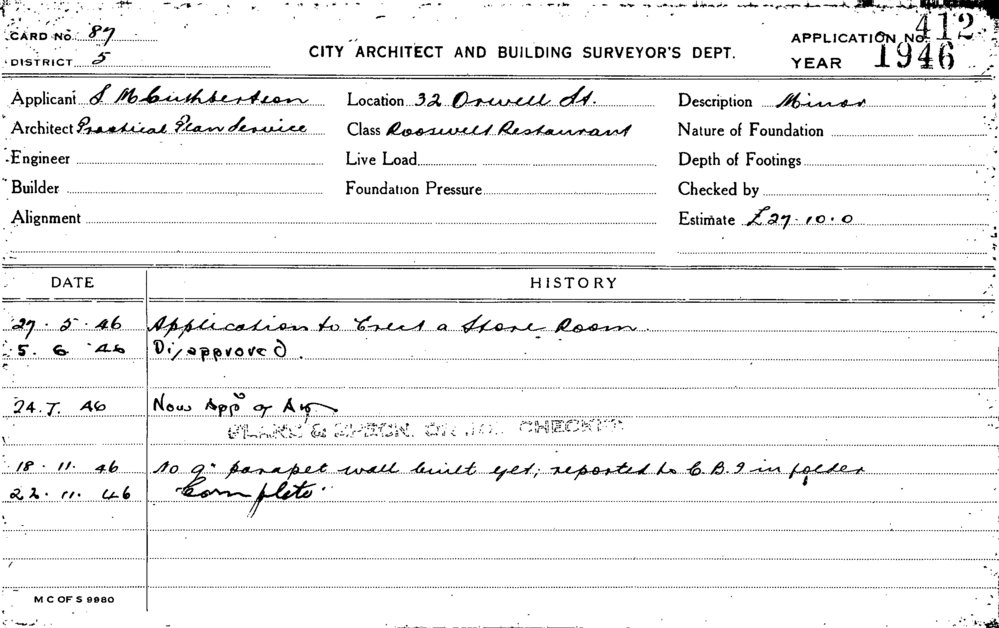 CARD No. 87
DISTRICT 5
CITY ARCHITECT AND BUILDING SURVEYOR'S DEPT.
APPLICATION No. 412
YEAR 1946
Applicant S McCuthbertson Location 32 Orwell St. Description Minor
Architect Practical Plan Service Class Roosevelt Restaurant Nature of Foundation
Engineer Live Load Depth of Footings
Builder Foundation Pressure Checked by
Alignment Estimate £27.10.0
DATE HISTORY
27.5.46 Application to Erect a Store Room.
5.6.46 Disapproved.
24.7.46 Now Appd
PLANS & SPECN. ON JOB CHECKED
18.11.46 No 9" parapet wall built yet; reported to C.B.I in folder
22.11.46 Complete
M C OF S 9980